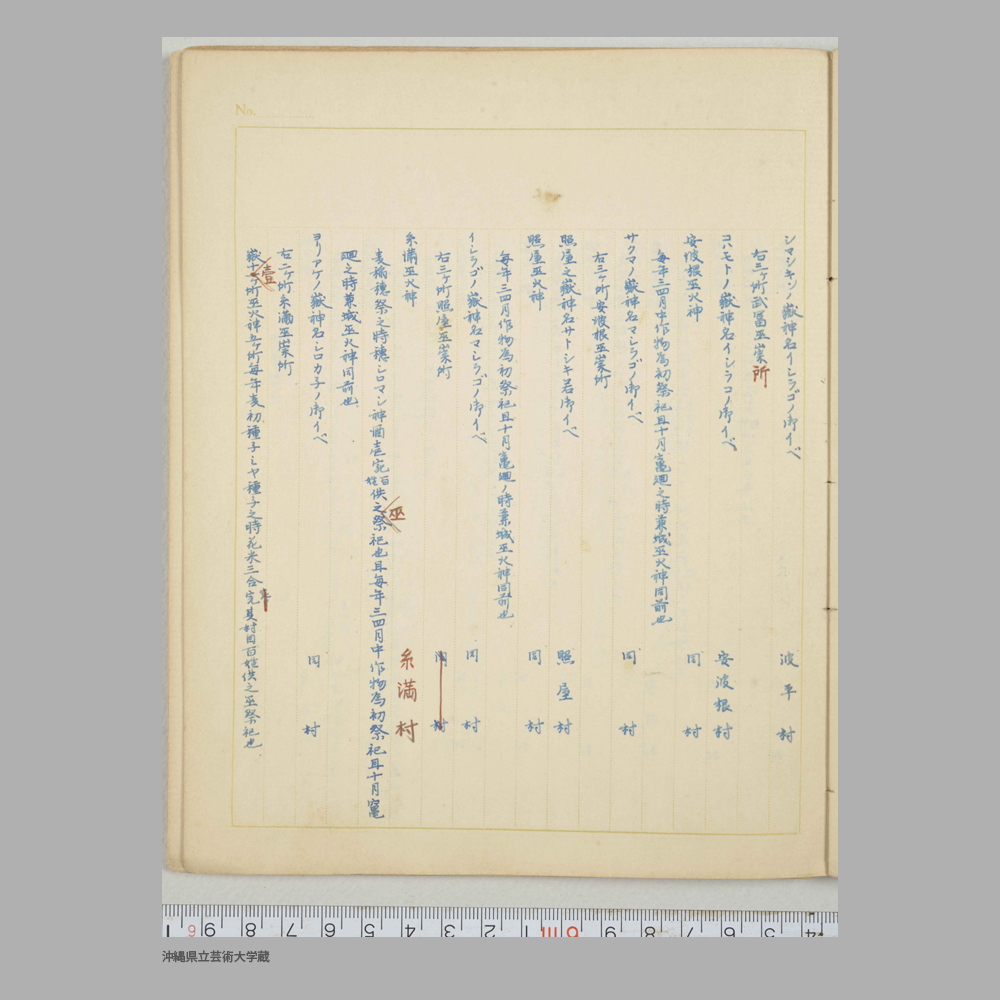 No.
シマシキンノ嶽神名イシラゴノ御イベ　波平村
右三ヶ所武冨巫崇所
コハモトノ嶽神名イシラコノ御イベ　安波根村
安波根巫火神　同村
毎年三四月中作物為初祭祀且十月竈廻之時兼城巫火神同前也
サクマノ嶽神名マシラゴノ御イベ　同村
右三ヶ所安波根巫崇所
照屋之嶽神名サトシキ君御イベ　照屋村
照屋巫火神　同村
毎年三四月作物為初祭祀且十月竈廻ノ時兼城巫火神同前也
イシラゴノ嶽神名マシラゴノ御イベ　同村
右三ヶ所照屋巫崇所　同村
糸満巫火神　糸満村
麦穂祭之時穂シロマシ神酒壱完百姓供之巫祭祀也且毎年三四月中作物為初祭祀且十月竈
廻之時兼城巫火神同前也
ヨリアゲノ嶽神名シロカ子ノ御イベ　同村
右二ヶ所糸満巫崇所
嶽十壹ヶ所巫火神五ヶ所毎年麦初種子ミヤ種子之時花米三合完其村目百姓供之巫祭祀也
沖縄県立芸術大学蔵